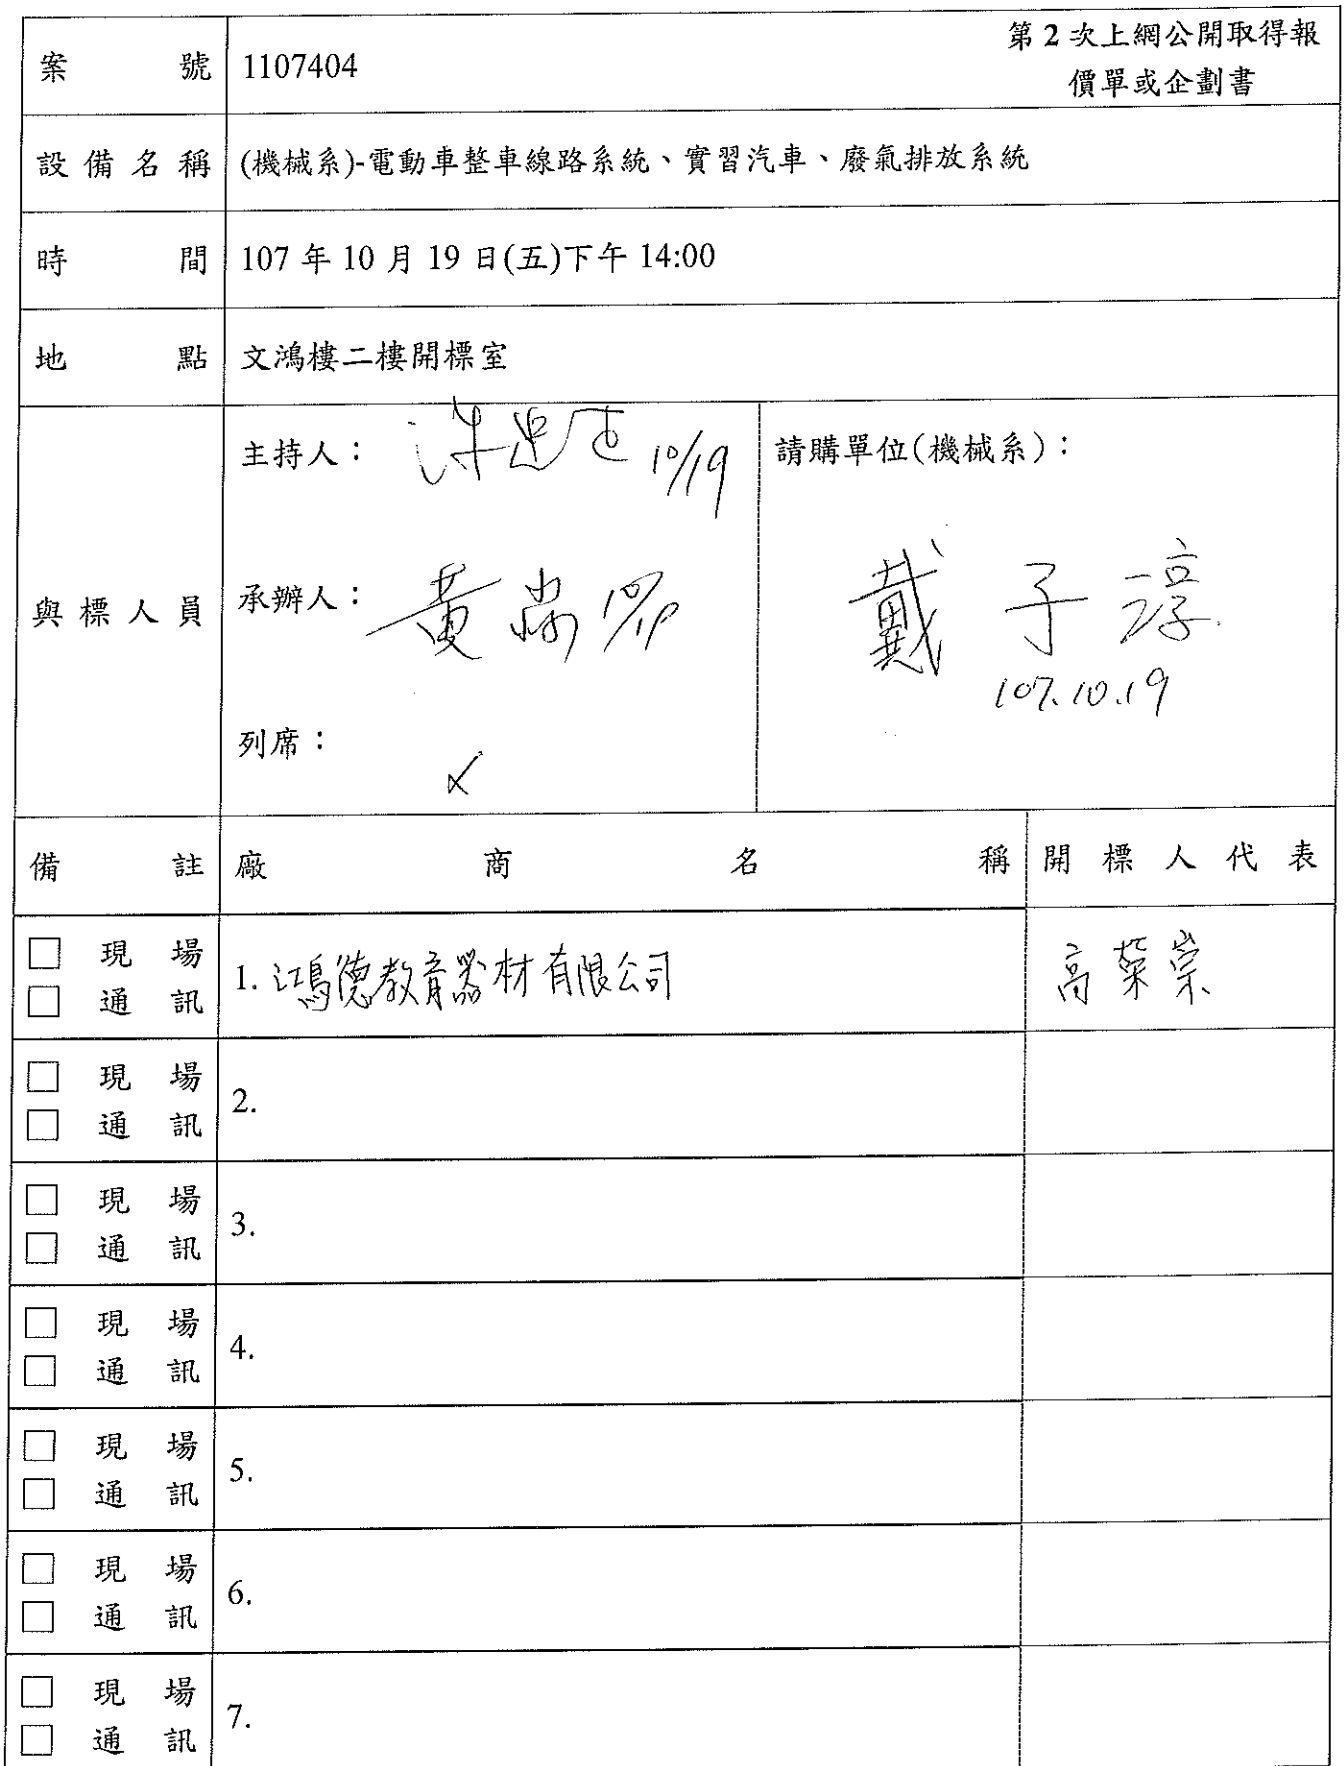 案號 1107404 第2次上網公開取得報
價單或企劃書
設備名稱 (機械系)-電動車整車線路系統、實習汽車、廢氣排放系統
時間 107 年 10 月 19 日(五)下午 14:00
地點 文鴻樓二樓開標室
與標人員
主持人： 10/19
承辦人： 黃尚
列席：
請購單位(機械系)：
戴子淳
107.10.19
備註 廠商名稱 開標人代表
□ 現場
□ 通訊
1. 鴻德教育器材有限公司 高榮崇
□ 現場
□ 通訊
2.
□ 現場
□ 通訊
3.
□ 現場
□ 通訊
4.
□ 現場
□ 通訊
5.
□ 現場
□ 通訊
6.
□ 現場
□ 通訊
7.